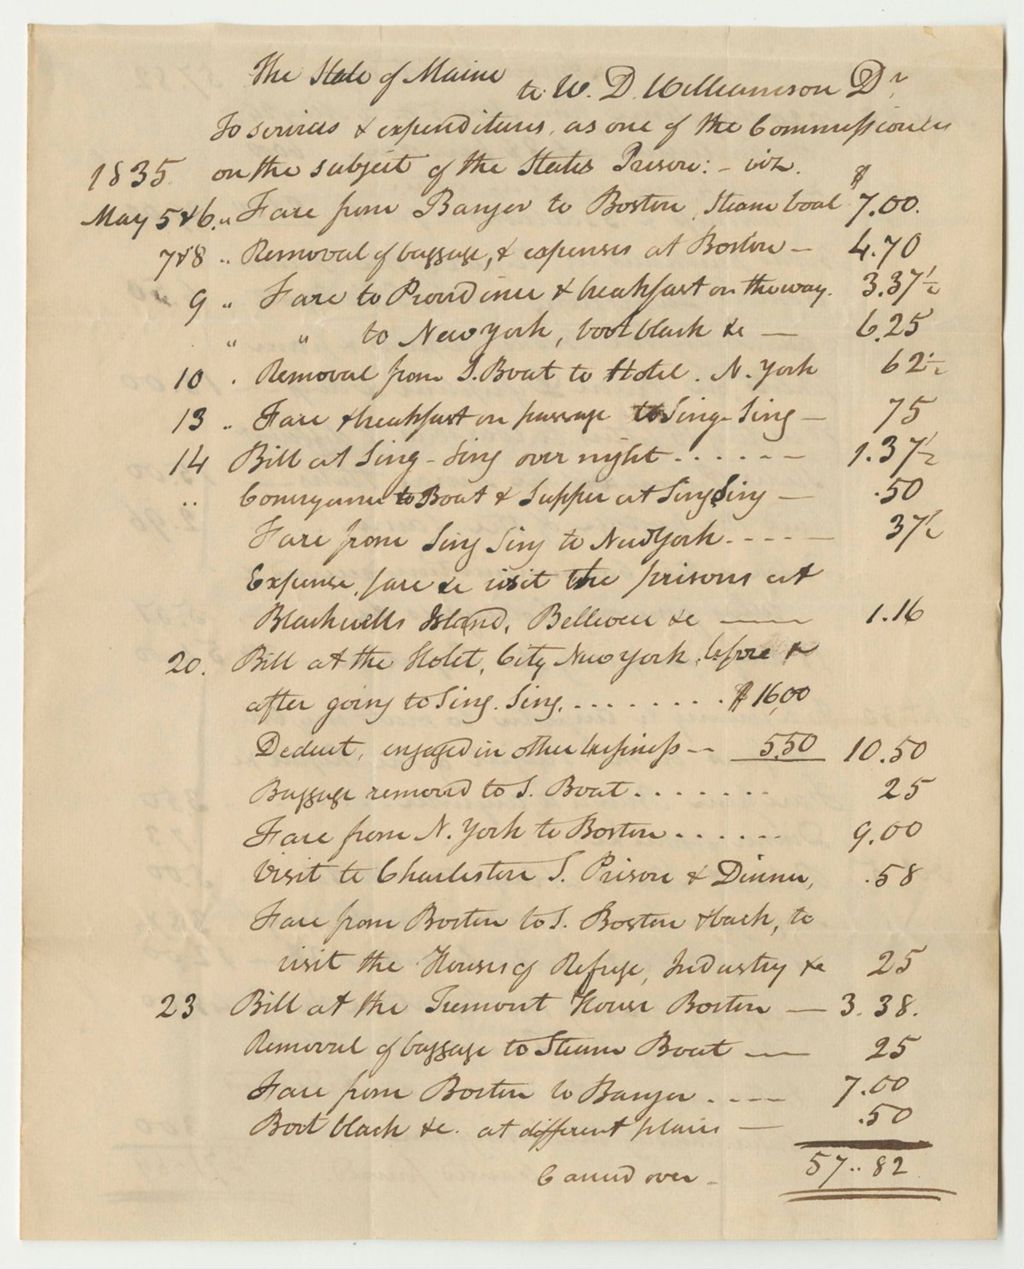 The State of Maine to W. D. Williamson Dr
To services & expenditures, as one of the Commissioners
1835. on the subject of the States Prison: - viz. $
May 5 & 6. " Fare from Bangor to Boston, Steam boat 7.00.
7 & 8 " Removal of baggage, & expenses at Boston — 4.70
9 " Fare to Providence & breakfast on the way. 3.37½
" " to New York, boot black &c — 6.25
10 " Removal from S. Boat to Hotel. N. York 62½
13 " Fare & breakfast on passage to Sing-Sing — 75
14 Bill at Sing-Sing over night . . . . . . 1.37½
" Conveyance to Boat & Supper at Sing Sing — .50
Fare from Sing Sing to New York. - - - - 37½
Expense, fare &c visit the prisons at
Blackwells Island, Bellevue &c —— 1.16
20. Bill at the Hotel, City New York, before &
after going to Sing. Sing. . . . . . . . . $16,00
Deduct, engaged in other business -- 5.50 10.50
Baggage removed to S. Boat . . . . . . . 25
Fare from N. York to Boston . . . . . . 9.00
Visit to Charleston S. Prison & Dinner, .58
Fare from Boston to S. Boston & back, to
visit the Houses of Refuge, Industry &c 25
23 Bill at the Tremont House Boston — 3.38.
Removal of baggage to Steam Boat —— 25
Fare from Boston to Bangor . - - - 7.00
Boot black &c. at different places — .50
Carried over - 57..82